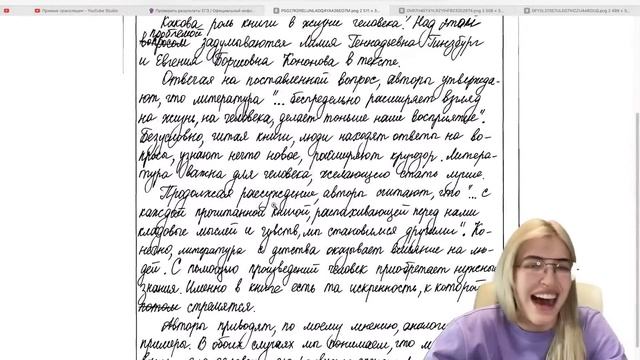 Прямые трансляции - YouTube Studio
Проверить результаты ЕГЭ | Официальный инфо...
Какова роль книги в жизни человека? Над этой
проблемой
вопросом задумываются Лидия Геннадьевна Гинзбург
и Евгения Борисовна Кононова в тексте.
Отвечая на поставленный вопрос, авторы утвержда-
ют, что литература "... беспредельно расширяет взгляд
на жизнь, на человека, делает тоньше наше восприятие".
Безусловно, читая книги, люди находят ответы на во-
просы, узнают нечто новое, расширяют кругозор. Литера-
тура важна для человека, желающего стать лучше.
Продолжая рассуждение, авторы считают, что "... с
каждой прочитанной книгой, распахивающей перед нами
кладовые мыслей и чувств, мы становимся другими". Ко-
нечно, литература с детства оказывает влияние на лю-
дей. С помощью произведений человек приобретает нужные
знания. Именно в книге есть та искренность, к которой
стремятся.
Авторы приводят, по моему мнению, аналоги
примера. В обоих случаях мы понимаем, что